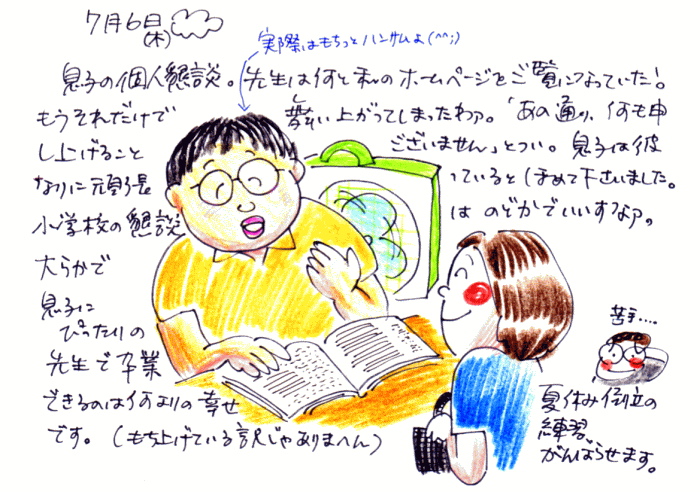 7月6日
(木)
実際はもちっとハンサムよ(^^;)
息子の個人懇談。先生は何と私のホームページをご覧になっていた!
もうそれだけで 舞い上がってしまったわァ。「あの通り、何も申
し上げること ございません」とつい。息子は彼
なりに頑張 っているとほめて下さいました。
小学校の懇談 は のどかでいいすなァ。
大らかで
息子に
ぴったりの
先生で卒業
できるのは何よりの幸せ
です。(もち上げている訳じゃありまへん)
苦手....
夏休み倒立の
練習、
がんばらせます。